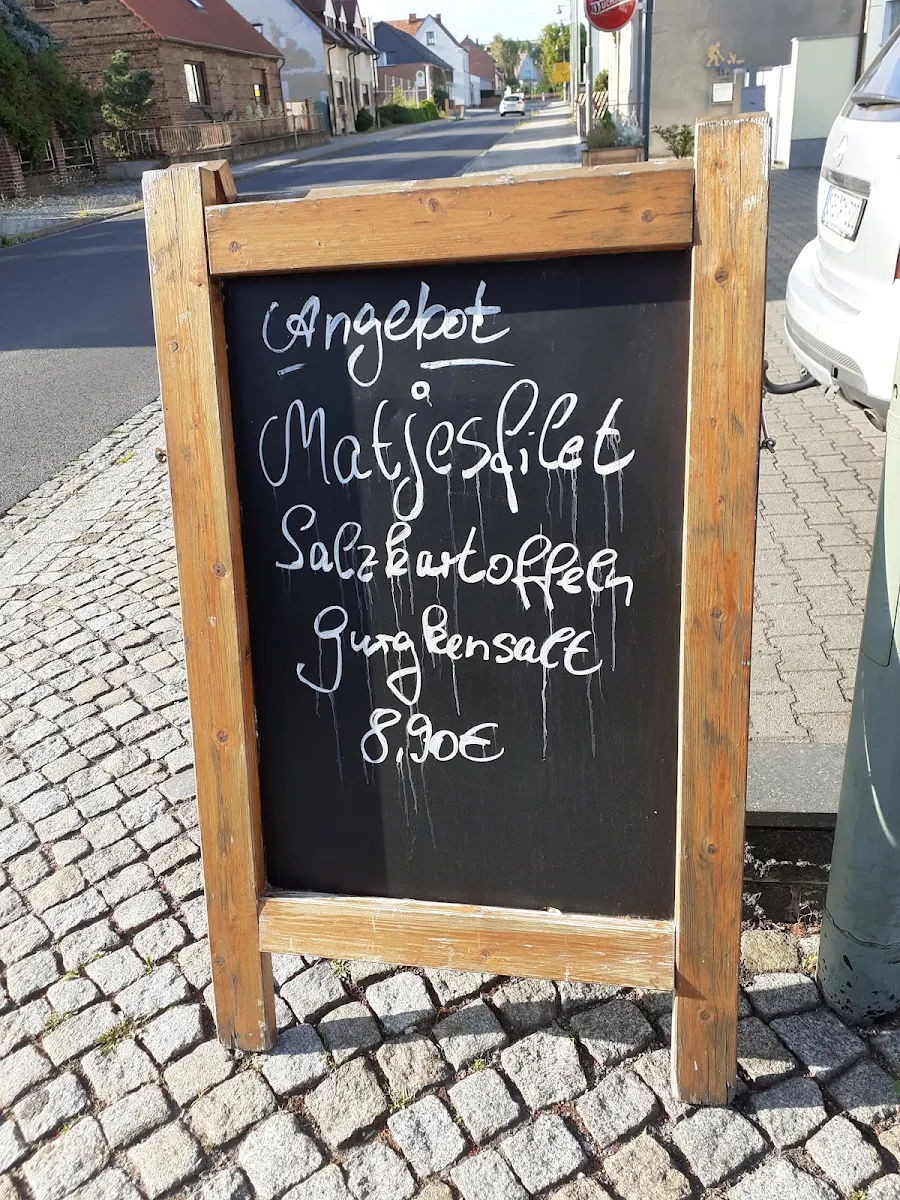 Angebot
Matjesfilet
Salzkartoffeln
Gurgkensalt
8,90€